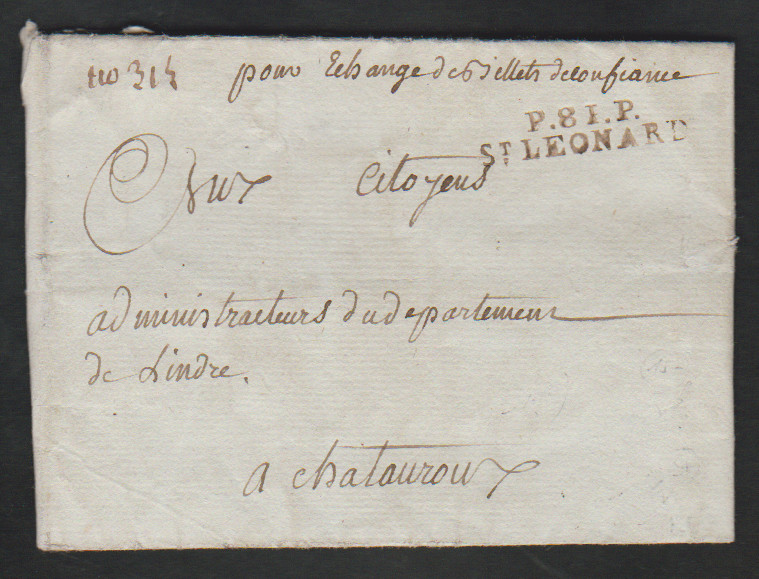 no 314 pour Echange de Billets de confiance
P.81.P.
ST LEONARD
Aux Citoyens
administracteurs du departement
de Lindre.
a chatauroux